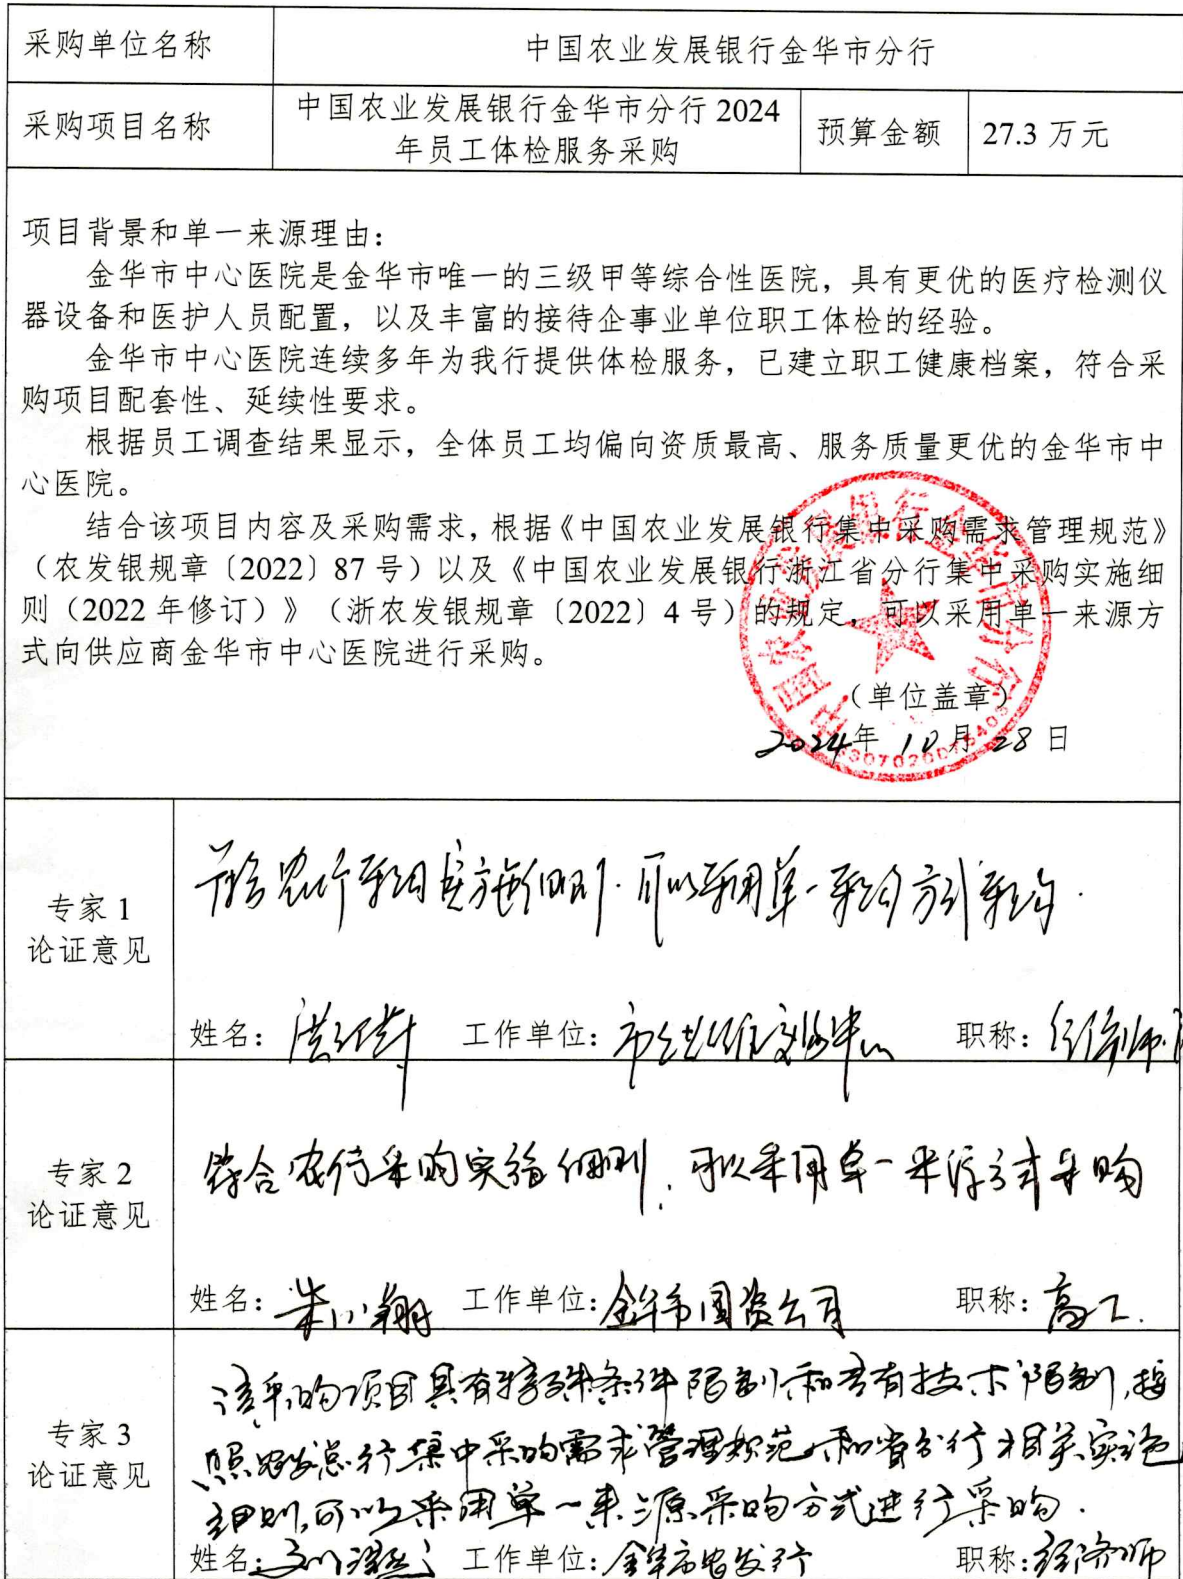 采购单位名称
中国农业发展银行金华市分行
采购项目名称
中国农业发展银行金华市分行 2024
年员工体检服务采购
预算金额
27.3 万元
项目背景和单一来源理由：
金华市中心医院是金华市唯一的三级甲等综合性医院，具有更优的医疗检测仪
器设备和医护人员配置，以及丰富的接待企事业单位职工体检的经验。
金华市中心医院连续多年为我行提供体检服务，已建立职工健康档案，符合采
购项目配套性、延续性要求。
根据员工调查结果显示，全体员工均偏向资质最高、服务质量更优的金华市中
心医院。
结合该项目内容及采购需求，根据《中国农业发展银行集中采购需求管理规范》
（农发银规章〔2022〕87 号）以及《中国农业发展银行浙江省分行集中采购实施细
则（2022 年修订）》（浙农发银规章〔2022〕4 号）的规定，可以采用单一来源方
式向供应商金华市中心医院进行采购。
中国农业发展银行金华市分行
（单位盖章）
2024年 10 月 28 日
专家 1
论证意见
符合农行采购实施细则.可以采用单一采购方式采购.
姓名： 工作单位： 职称：经济师
专家 2
论证意见
符合农行采购实施细则，可以采用单一来源方式采购
姓名：朱小翔 工作单位：金华市国资公司 职称：高工.
专家 3
论证意见
该采购项目具有特殊条件限制和专有技术限制,按
照农发总行集中采购需求管理规范和省分行相关实施
细则,可以采用单一来源采购方式进行采购.
姓名： 工作单位：金华市农发行 职称：经济师